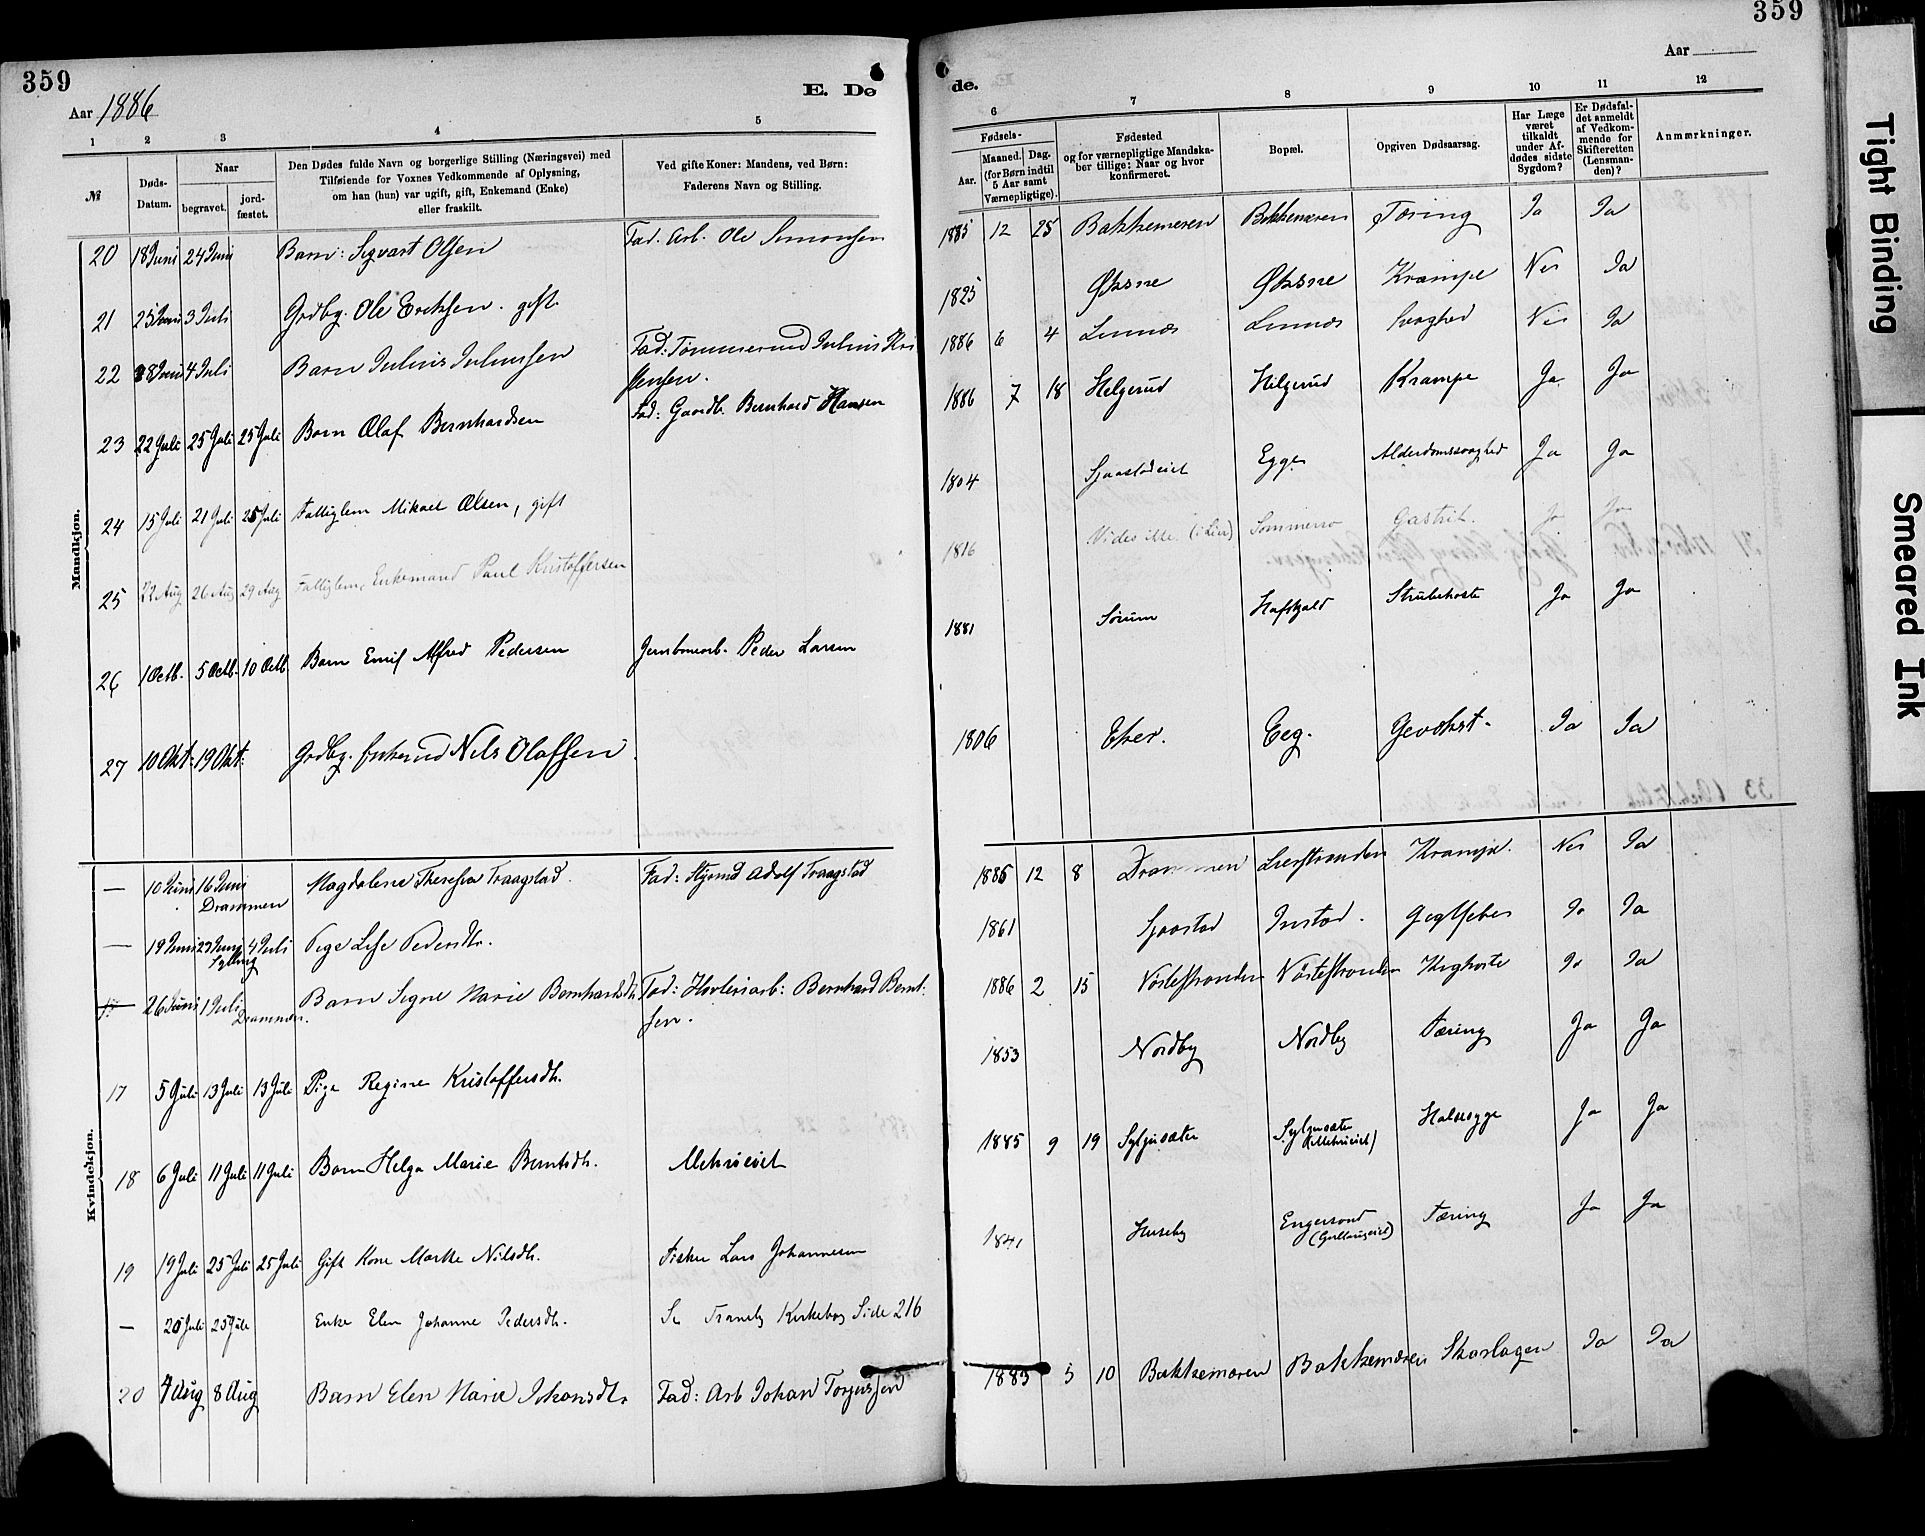 359
359
Aar 1886
E. Dø
de.
Aar
1 2 3 4 5
6 7 8 9 10 11 12
№
Døds-Datum.
Naar
begravet.
jord-fæstet.
Den Dødes fulde Navn og borgerlige Stilling (Næringsvei) med
Tilføiende for Voxnes Vedkommende af Oplysning,
om han (hun) var ugift, gift, Enkemand (Enke)
eller fraskilt.
Ved gifte Koner: Mandens, ved Børn:
Faderens Navn og Stilling.
Fødsels-
Aar.
Maaned.
Dag.
(for Børn indtil
5 Aar samt
Værnepligtige).
Fødested
og for værnepligtige Mandska-
ber tillige: Naar og hvor
konfirmeret.
Bopæl.
Opgiven Dødsaarsag.
Har Læge
været
tilkaldt
under Af-
dødes sidste
Sygdom?
Er Dødsfal-
det anmeldt
af Vedkom-
mende for
Skifteretten
(Lensman-
den)?
Anmærkninger.
Mandkjøn.
20 18 Juni 24 Juni Barn: Sigvart Olsen Fad. Arb. Ole Simonsen 1885 12 25 Bakkemeren Bakkemeren Tæring Ja Ja
21 25 Juni 3 Juli Grdbg. Ole Erichsen. gift. 1825 Øksne Øksne Krampe Nei Ja
22 28 Juni 4 Juli Barn Julius Juliussen Fad: Tømmermd Julius Kri
stensen. 1886 6 4 Linnes Linnes Svaghed Nei Ja
23 22 Juli 25 Juli 25 Juli Barn Olaf Bernhardsen Fad: Gaardb. Bernhard Hansen 1886 7 18 Helgerud Helgerud Krampe Ja Ja
24 15 Juli 21 Juli 25 Juli Fattiglem Mikael Olsen, gift 1804 Sjaastadeiet Egge Alderdomssvaghed Ja Ja
25 22 Aug 26 Aug 29 Aug Fattiglem, Enkemand Paul Kristoffersen 1816 Vides ikke (i Lier) Sommerro Gastrit. Ja Ja
26 1 Octb. 5 Octb. 10 Octb. Barn Emil Alfred Pedersen Jernbanearb. Peder Larsen 1881 Sørum Hafskjold Strubehoste Ja Ja
27 10 Okt. 19 Okt. Grdbg. Enkemd Nils Olafsen 1806 Eker. Eeg. Gevækst. Ja Ja
Kvindekjøn.
— 10 Juni 16 Juni Drammen Magdalene Theresia Traagstad. Fad: Styrmd Adolf Traagstad 1885 12 8 Drammen Lierstranden Krampe. Nei Ja
— 19 Juni 27 Juni Sylling 4 Juli Pige Lise Pedersdtr. 1861 Sjaastad Instad. Gigtfeber Ja Ja
26 Juni 1 Juli Drammen. Barn Signe Marie Bernhardsdtr. Fad: Høvleriarb: Bernhard Bernt-
sen. 1886 2 15 Nøstestranden Nøstestranden Kighoste Ja Ja
17 5 Juli 13 Juli 13 Juli Pige Regine Kristoffersdtr. 1853 Nordby Nordby Tæring Ja Ja
18 6 Juli 11 Juli 11 Juli Barn Helga Marie Berntsdtr. 1885 9 19 Halssyge Ja Ja
19 19 Juli 25 Juli 25 Juli Gift Kone Marthe Nilsdtr. Fisker Lars Johannesen 1841 Huseby Engersand
(Gullaugeiet) Tæring Ja Ja
— 20 Juli 25 Juli Enke Elen Johanne Pedersdtr. Se Tranby Kirkebog Side 216
20 4 Aug 8 Aug Barn Elen Marie Johansdtr. Fad: Arb Johan Torgersen 1883 5 10 Bakkemoren Bakkemoren Skarlagen Ja Ja
Tight Binding
Smeared Ink